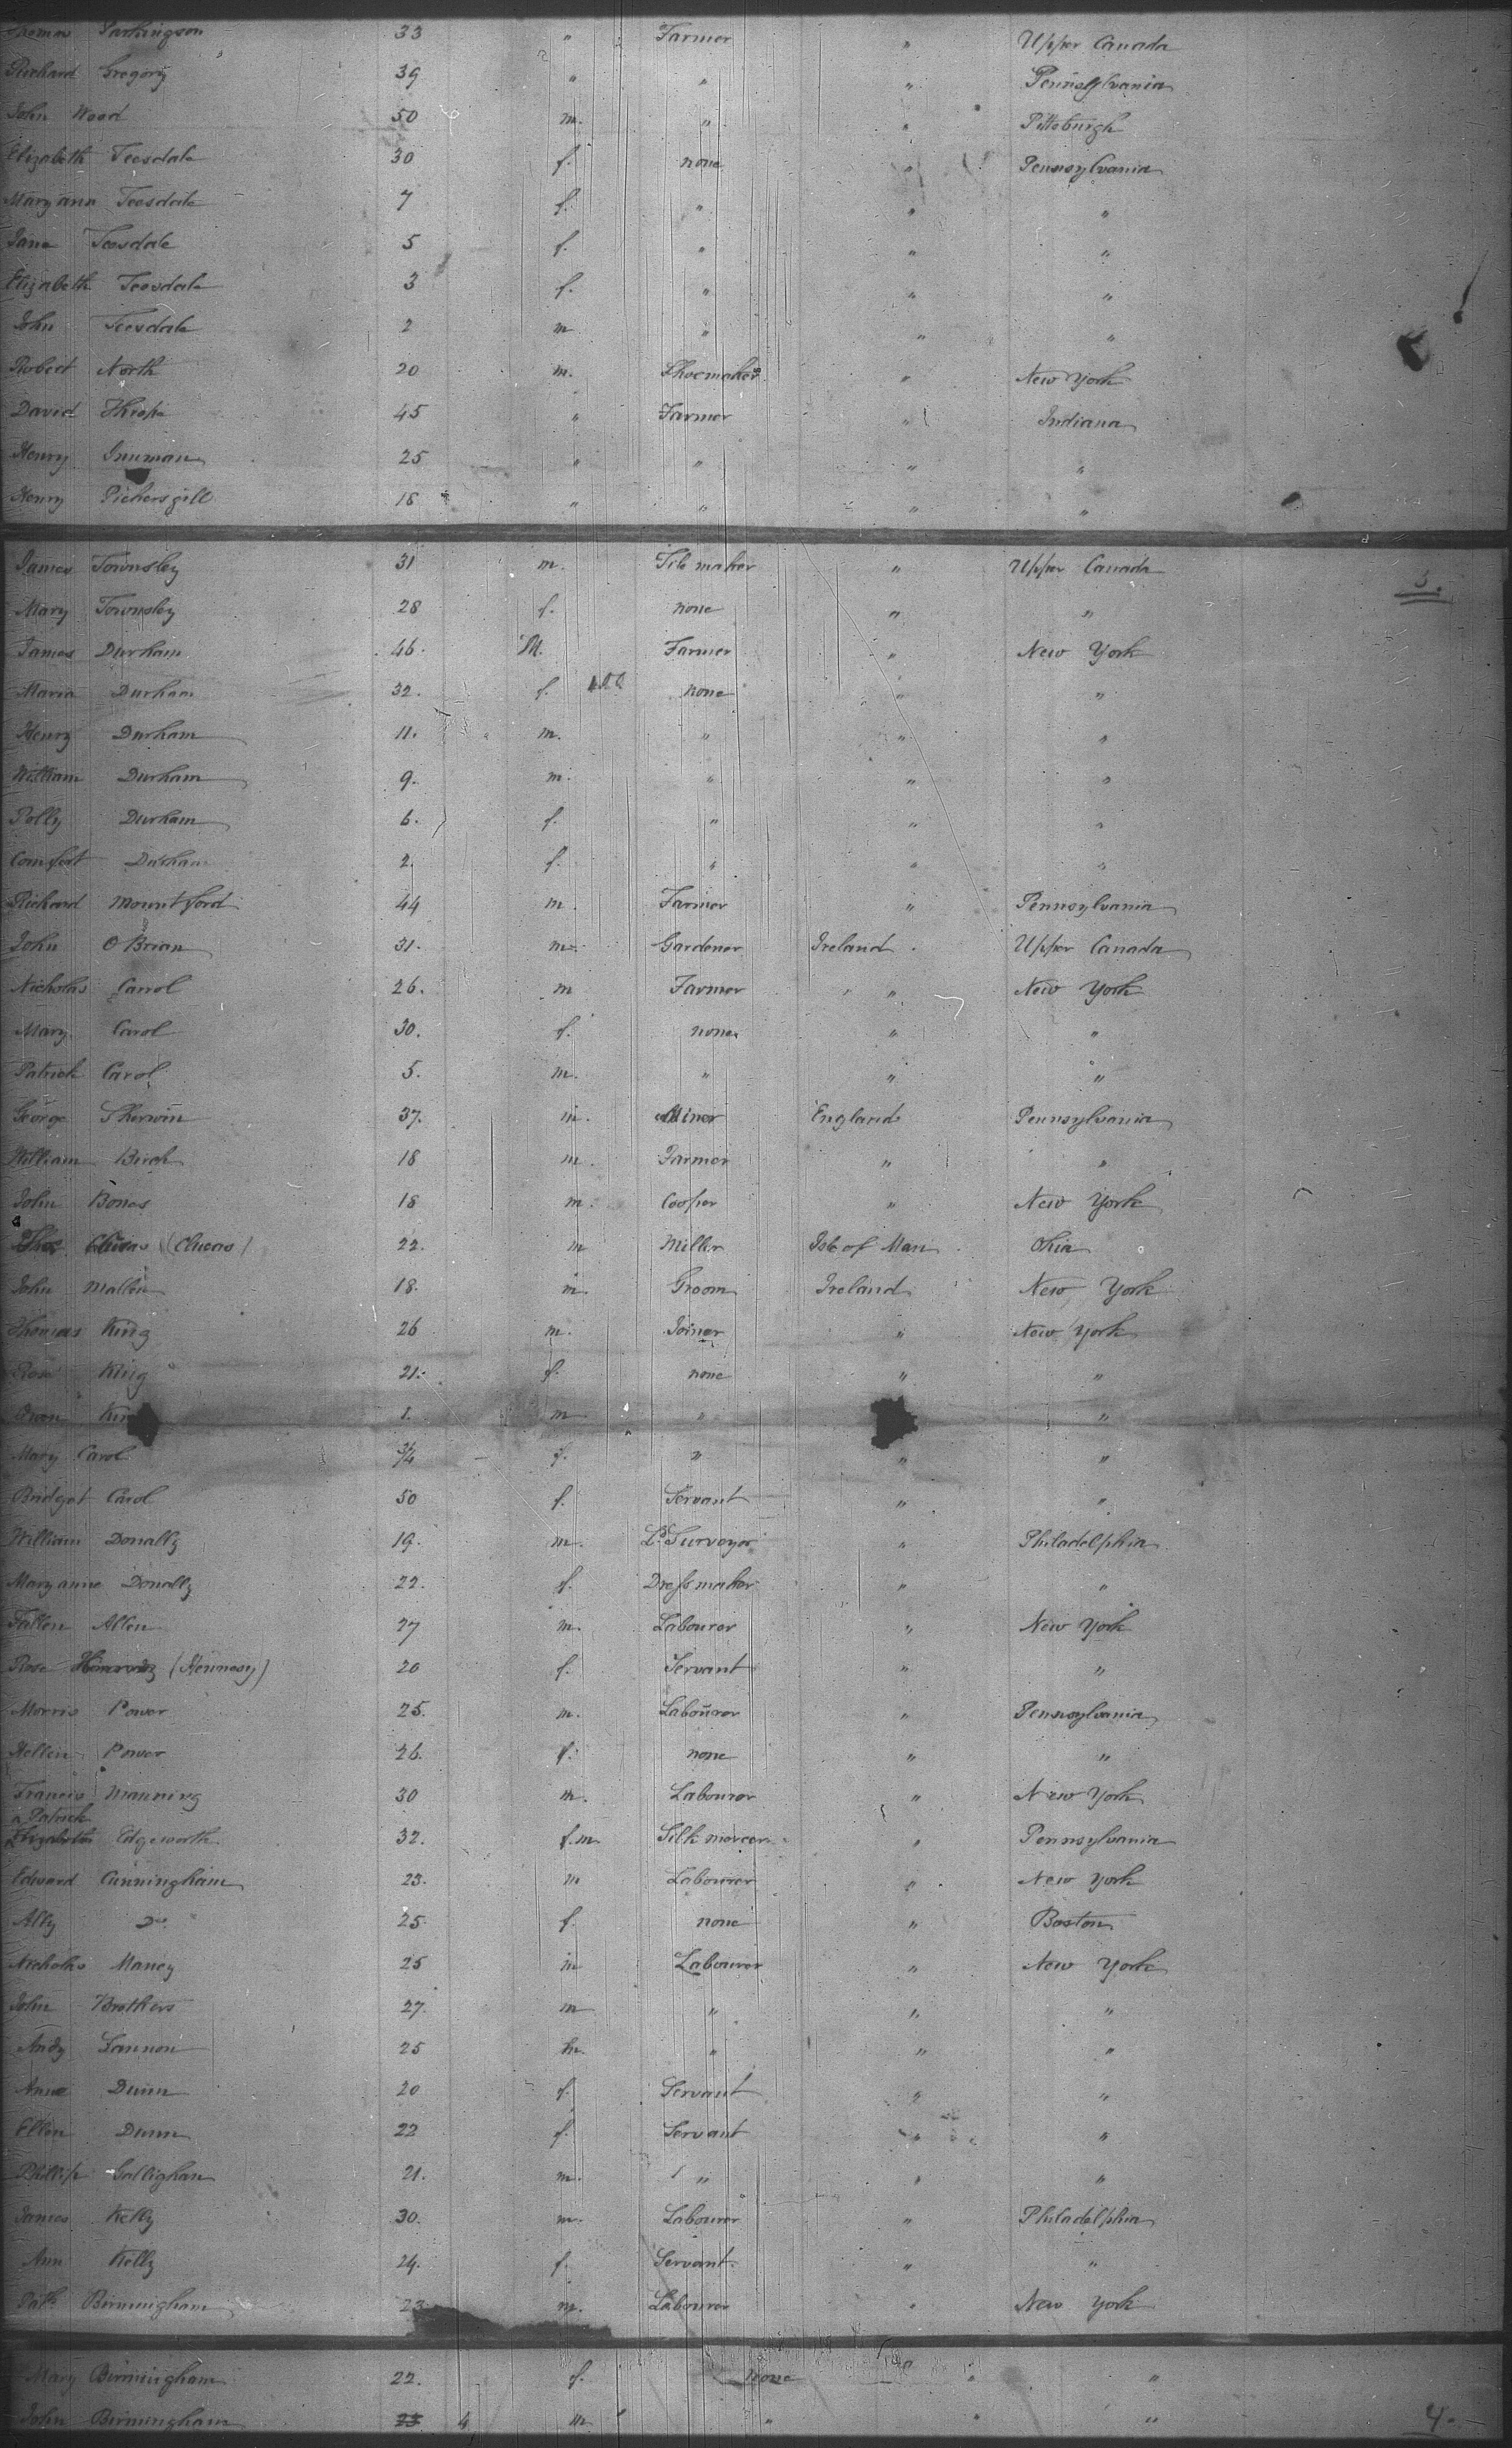 Thomas Parkingson 33 " Farmer " Upper Canada
Richard Gregory 39 " " " Pennsylvania
John Wood 50 m. " " Pittsburgh
Elizabeth Teesdale 30 f. none " Pennsylvania
Maryann Teesdale 7 f. " " "
Jane Teesdale 5 f. " " "
Elizabeth Teesdale 3 f. " " "
John Teesdale 2 m " " "
Robert North 20 m. Shoemaker " New York
David 45 " Farmer " Indiana
Henry 25 " " " "
Henry Pickersgill 18 " " " "
James Townsley 31 m. Tile maker " Upper Canada
3.
Mary Townsley 28 f. none " "
James Durham 46. M. Farmer " New York
Maria Durham 32. f. none " "
Henry Durham 11. m. " " "
William Durham 9. m. " " "
Polly Durham 6. f. " " "
Comfort Durham 2. f. " " "
Richard Mountford 44 m. Farmer " Pennsylvania
John O Brian 31. m. Gardener Ireland Upper Canada
Nicholas Carrol 26. m Farmer " New York
Mary Carol 30. f. none " "
Patrick Carol 5. m. " " "
George Sherwin 37. m. Miner England Pennsylvania
William Birch 18 m. Farmer " "
John Bones 18 m. Cooper " New York
Thos (Clucas) 22. m Miller Isle of Man Ohio
John Mallen 18. m Groom Ireland New York
Thomas King 26 m. Joiner " New York
Rose King 21. f. none " "
Owen King 1. m " " "
Mary Carol 3/4 f. " " "
Bridget Carol 50 f. Servant " "
William Donally 19. m. Ld. Surveyor " Philadelphia
Maryanne Donally 22. f. Dressmaker " "
Fallen Allen 27 m. Labourer " New York
Rose (Hennesy) 20 f. Servant " "
Morris Power 25. m. Labourer " Pennsylvania
Hellen Power 26. f. none " "
Francis Manning 30 m. Labourer " New York
Patrick
Elizabeth Edgeworth 32. f. m Silk mercer " Pennsylvania
Edward Cunningham 23. m Labourer " New York
Ally Do. 25. f. none " Boston
Nicholas Maney 25 m Labourer " New York
John Brothers 27. m " " "
Andy Lannon 25 m. " " "
Anne Dunn 20 f. Servant " "
Ellen Dunn 22 f. Servant " "
Phillip Galligham 21. m. " " "
James Kelly 30. m. Labourer " Philadelphia
Ann Kelly 24. f. Servant " "
Patk. Birmingham 23 m. Labourer " New York
Mary Birmingham 22. f. none " "
John Birmingham 23 4 m " " "
4.